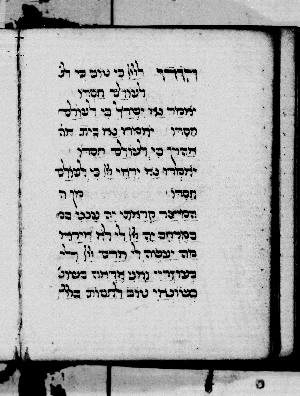 הודו ליי כי טוב כי לע
לעולם חסדו
יאמר נא ישראל כי לעולם
חסדו יאמרו נא בית אה
אהרן כי לעולם חסדו
יאמרו נא יראי יי כי לעולם
חסדו מן ה
המיצר קראתי יה ענני במ
במרחב יה יי לי לא אירא
מה יעשה לי אדם יי לי
בעוזרי ואני אראה בשונ
בשונאי טוב לחסות ביי